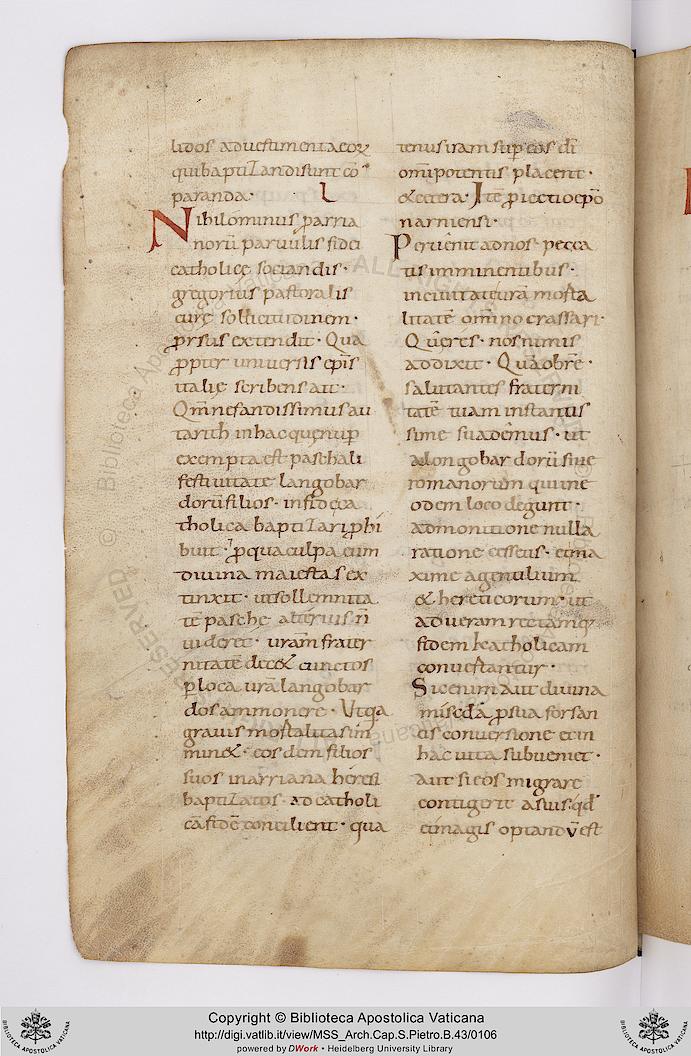 lidos ad uestimenta eoꝝ
qui baptizandi sunt cō
paranda.
L
Nihilominus ꝓ arria
norū paruulis fidei
catholicę sociandis·
gregorius pastoralis
curę sollicitudinem·
prsus extendit· Qua
ꝓpter uniuersis ep̄is
italię scribens ait·
Qm̄ nefandissimus au
tarith in hac quę nup̄
exempta est paschali
festiuitate langobar
dorū filios· in fide ca
tholica baptizari ꝓhi
buit· ꝓ qua culpa eum
diuina maiestas ex
tinxit· ut sollemnita
tē pasche alterius n̄
uideret· urām frater
nitatē decet cunctos
ꝑ loca urā langobar
dos ammonere· Ut qa
grauis mortalitas im
minet· eosdem filios
suos in arriana heresi
baptizatos· ad catholi
cā fidē concilient· qua
tenus iram sup̄ eos dī
omīpotentis placent·
&cetera· Itē p̄iectio ep̄o
narniensi·
Peruēnit ad nos pecca
tis imminentibus·
in ciuitate urā morta
litatē omīno crassari·
Quę res· nos nimis
addixit· Qua obrē·
salutantes fraterni
tatē tuam instantis
sime suadēmus· ut
a longobardorū siue
romanorum qui in e
odem loco degunt·
admonitione nulla
ratione cesses· et ma
xime a gentilium
& hereticorum· ut
ad ueram rectamq;
fidem katholicam
conuertantur·
Sic enim aut diuina
mis̄cdā ꝓ sua forsan
eis conuersione et in
hac uita subueniet·
aut si eos migrare
contigerit a suis· qđ
et magis optandū est
Copyright © Biblioteca Apostolica Vaticana
http://digi.vatlib.it/view/MSS_Arch.Cap.S.Pietro.B.43/0106
powered by DWork • Heidelberg University Library
BIBLIOTECA APOSTOLICA VATICANA
BIBLIOTECA APOSTOLICA VATICANA